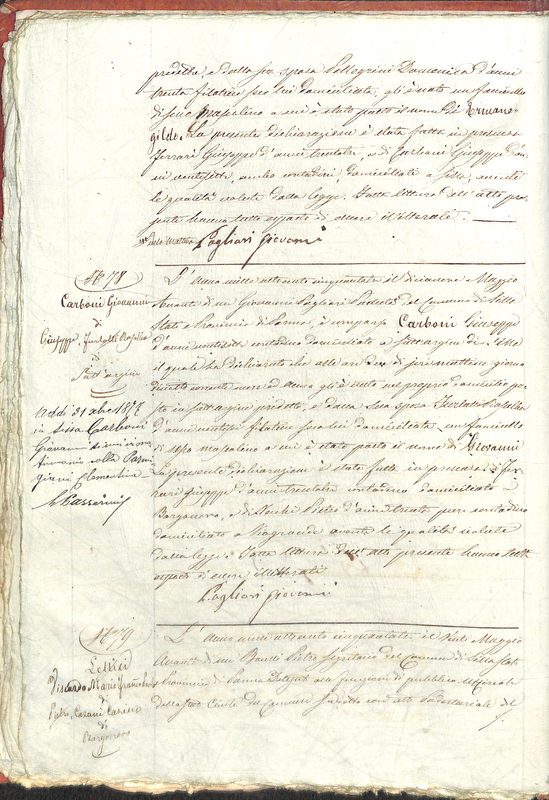 predetta, e dalla sua sposa Pellegrini Domenica d'anni
trenta filatrice seco lui domiciliata, gli è nato un fanciullo
di sesso mascolino a cui è stato posto il nome di Ermene-
gildo. La presente dichiarazione è stata fatta in presenza
Ferrari Giuseppe d'anni trentatre, e di Carboni Giuseppe d'an-
ni ventisette, ambo contadini, domiciliati a Sissa, aventi
le qualità volute dalla legge. Fatta lettura dell'atto pre-
sente hanno tutti asserto di essere illetterati.
della mattina Pagliari Giovanni
N° 78
Carboni Giovanni
di
Giuseppe, Furlotti Rosalia
di
Sott'argine
Addì 31 Xbre 1878
in Sissa Carboni
Giovanni si unì in
matrimonio colla Parmi
giani Clementina
L'Anno mille ottocento cinquantatre il diecinove Maggio
Avanti di me Giovanni Pagliari Podestà del Comune di Sissa
Stato e Provincia di Parma, è comparso Carboni Giuseppe
d'anni ventisette contadino domiciliato a Sott'argine di Sissa
il quale ha dichiarato che alle ore due di jeri mattina giorno
diciotto corrente mese ed Anno gli è nato nel proprio domicilio po-
sto in Sottargine predetto, e dalla sua sposa Furlotti Rosalia
d'anni ventisei filatrice seco lui domiciliata un fanciullo
di sesso mascolino a cui è stato posto il nome di Giovanni
La presente dichiarazione è stata fatta in presenza di Fer-
rari Giuseppe d'anni trentatre contadino domiciliato a
Borgonovo, e di Pietro d'anni trenta pure contadino
domiciliato a aventi le qualità volute
dalla legge. Fatta lettura dell'atto presente hanno tutti
asserto d'essere illetterati
Pagliari Giovanni
N° 79
Viscardo Mario Francesco
di
Pietro,
di
Borgonovo
L'Anno mille ottocento cinquantatre il venti Maggio
Avanti di me Pietro Segretario del Comune di Sissa Stato
e Provincia di Parma Delegato alle funzioni di pubblico Ufficiale
dello Stato Civile del Comune suddetto con atto Podestariale del